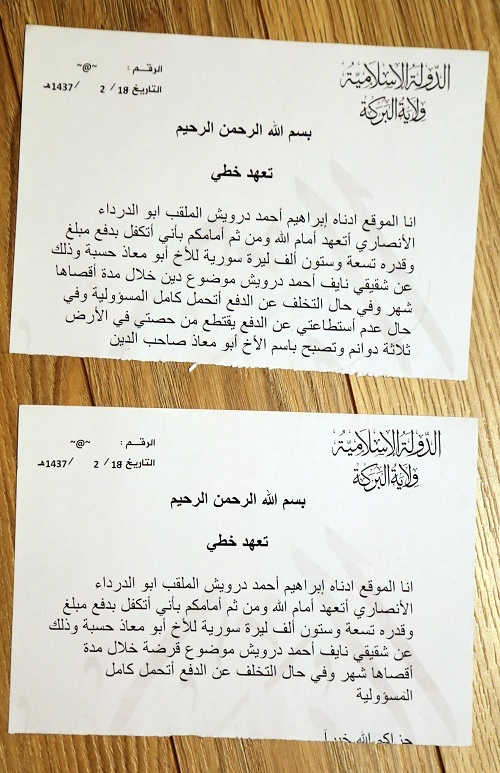 الدولة الإسلامية
ولاية البركة
الرقم : ~@~
التاريخ 18/ 2 /1437هـ
بسم الله الرحمن الرحيم
تعهد خطي
انا الموقع ادناه إبراهيم أحمد درويش الملقب ابو الدرداء
الأنصاري أتعهد أمام الله ومن ثم أمامكم بأني أتكفل بدفع مبلغ
وقدره تسعة وستون ألف ليرة سورية للأخ أبو معاذ حسبة وذلك
عن شقيقي نايف أحمد درويش موضوع دين خلال مدة أقصاها
شهر وفي حال التخلف عن الدفع أتحمل كامل المسؤولية وفي
حال عدم أستطاعتي عن الدفع يقتطع من حصتي في الأرض
ثلاثة دوانم وتصبح باسم الأخ أبو معاذ صاحب الدين
الدولة الإسلامية
ولاية البركة
الرقم : ~@~
التاريخ 18/ 2 /1437هـ
بسم الله الرحمن الرحيم
تعهد خطي
انا الموقع ادناه إبراهيم أحمد درويش الملقب ابو الدرداء
الأنصاري أتعهد أمام الله ومن ثم أمامكم بأني أتكفل بدفع مبلغ
وقدره تسعة وستون ألف ليرة سورية للأخ أبو معاذ حسبة وذلك
عن شقيقي نايف أحمد درويش موضوع قرضة خلال مدة
أقصاها شهر وفي حال التخلف عن الدفع أتحمل كامل
المسؤولية
جزاكم الله خيراً